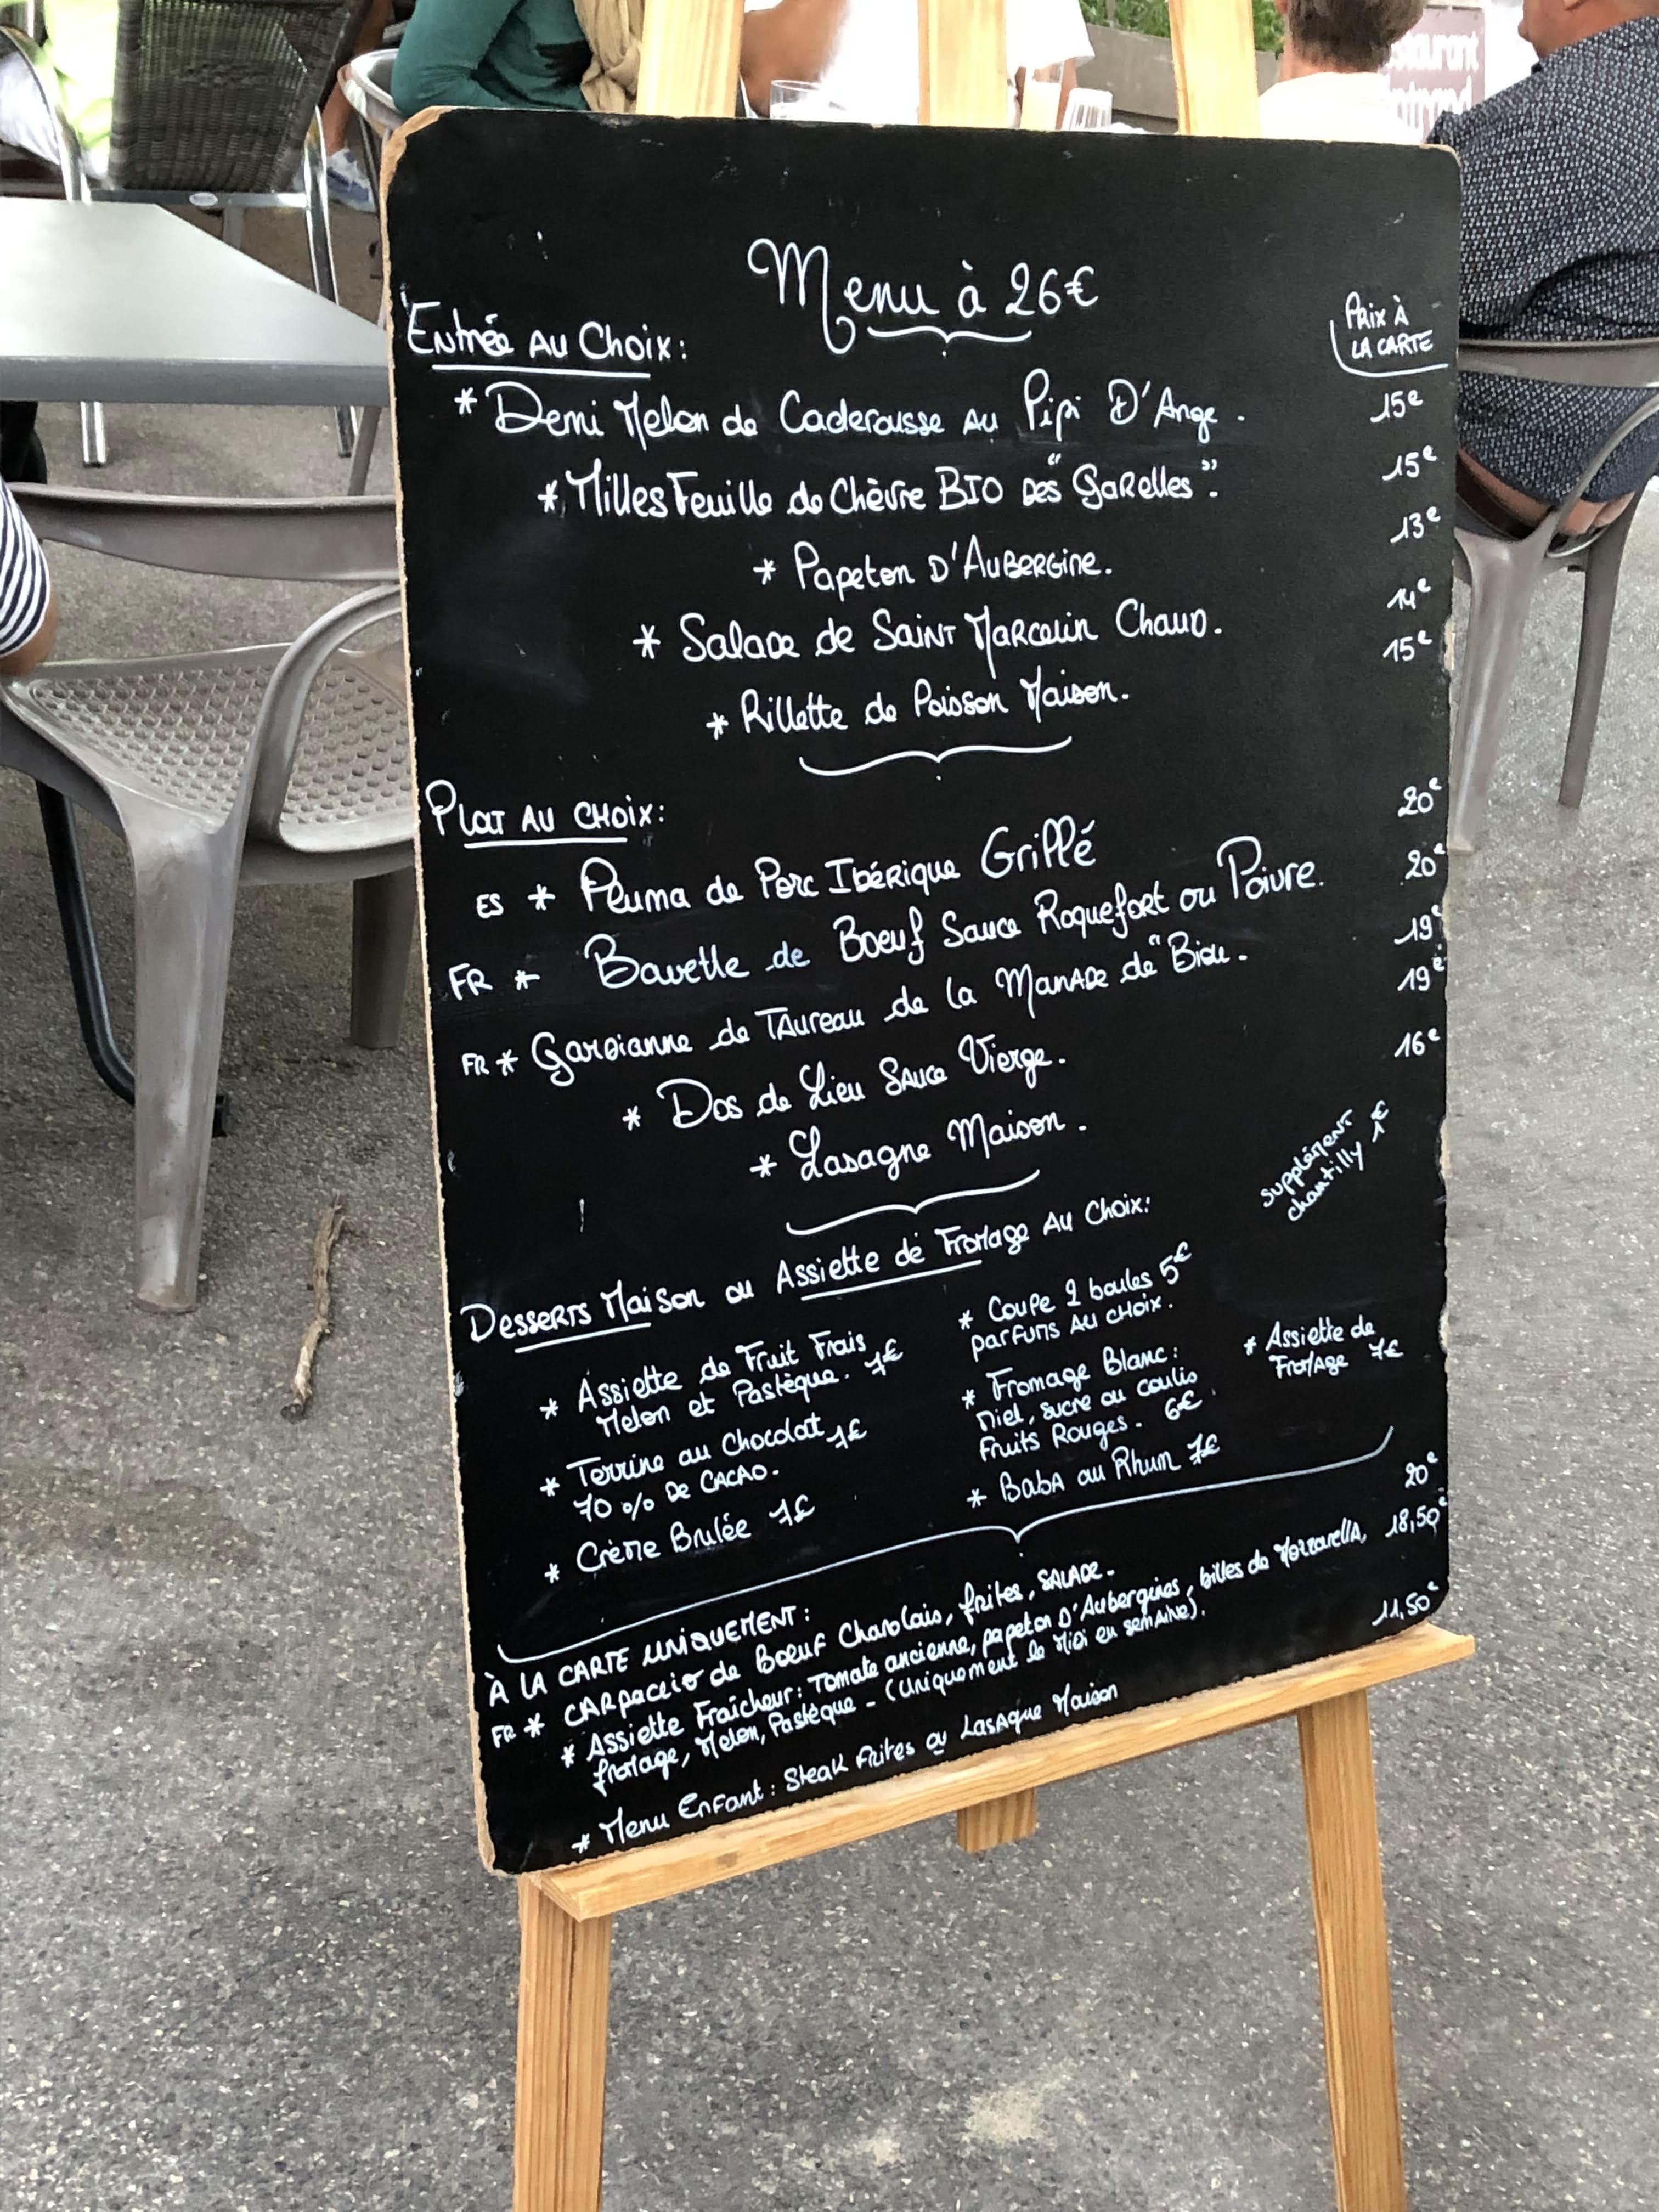 Menu à 26€
Prix à
la carte
Entrée au Choix:
* Demi Melon de Caderousse au Pipi D'Ange. 15€
* Milles Feuille de Chèvre BIO des "Garelles". 15€
* Papeton D'Aubergine. 13€
* Salade de Saint Marcelin Chaud. 14€
* Rillette de Poisson Maison. 15€
Plat au choix:
ES * Pluma de Porc Ibérique Grillé 20€
FR * Bavette de Boeuf Sauce Roquefort ou Poivre. 20€
FR * Gardianne de Taureau de la Manade de "Biou. 19€
* Dos de Lieu Sauce Vierge. 19€
* Lasagne Maison. 16€
supplément
chantilly 1€
Desserts Maison ou Assiette de Fromage au Choix:
* Assiette de Fruit Frais
Melon et Pastèque. 7€
* Terrine au Chocolat 7€
70 % de CACAO.
* Crème Brulée 7€
* Coupe 2 boules 5€
parfums au choix.
* Fromage Blanc:
Miel, sucre ou coulis
Fruits Rouges. 6€.
* Baba au Rhum 7€
* Assiette de
Fromage 7€
À la carte uniquement:
FR * Carpaccio de Boeuf Charolais, frites, salade. 20€
* Assiette Fraîcheur: Tomate ancienne, papeton D'Aubergines, billes de Mozzarella, 18,50€
fromage, Melon, Pastèque - (uniquement le Midi en semaine).
* Menu Enfant: Steak Frites ou Lasagne Maison 11,50€